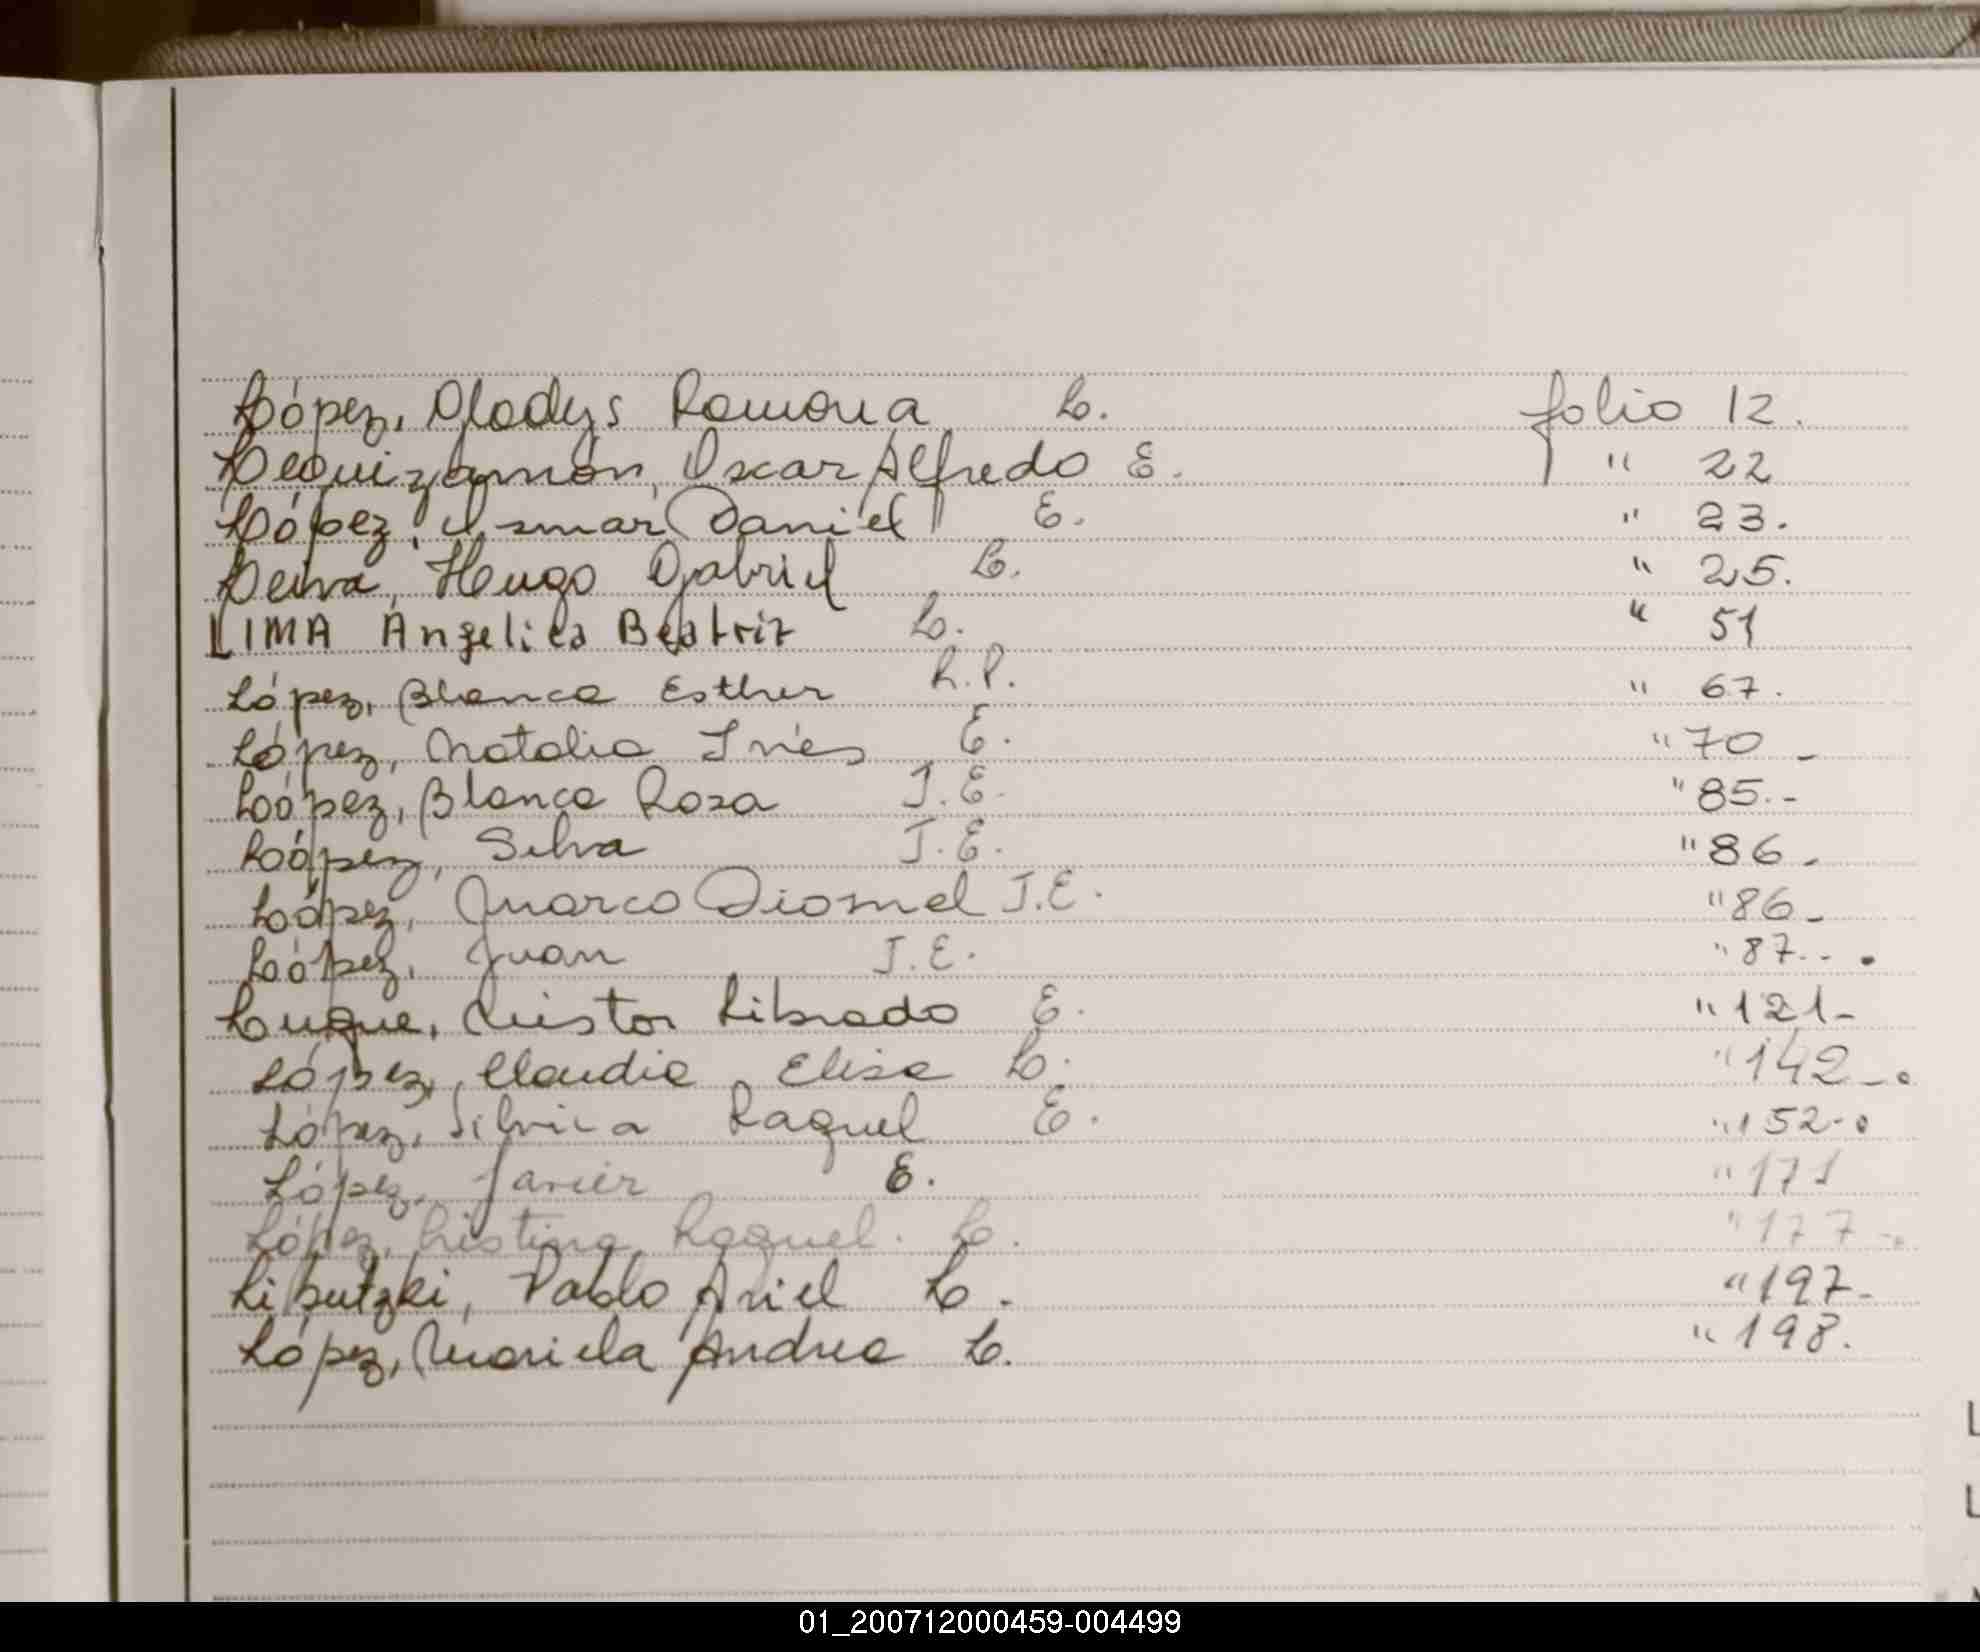 López, Gladys Ramona L. folio 12.
Leguizamón, Oscar Alfredo E. " 22
López, Ismar Daniel E. " 23.
Leiva, Hugo Gabriel L. " 25.
LIMA Angelica Beatriz L. " 51
López, Blanca Esther R.P. " 67.
López, Natalia Inés E. " 70 -
López, Blanca Rosa J.E. " 85.-
López, Silva J.E. " 86 -
López, Marco Diomel J.E. " 86 -
López, Juan J.E. " 87-- .
Luque, Néstor Librado E. " 121-
López, Claudia Elisa L. " 142 -.
López, Silvia Raquel E. " 152-.
López, Javier E. " 171
López, Cristina Raquel. L. " 177 -.
Liputzki, Pablo Ariel L. " 197-
López, Mariela Andrea L. " 198.
L
L
01_200712000459-004499